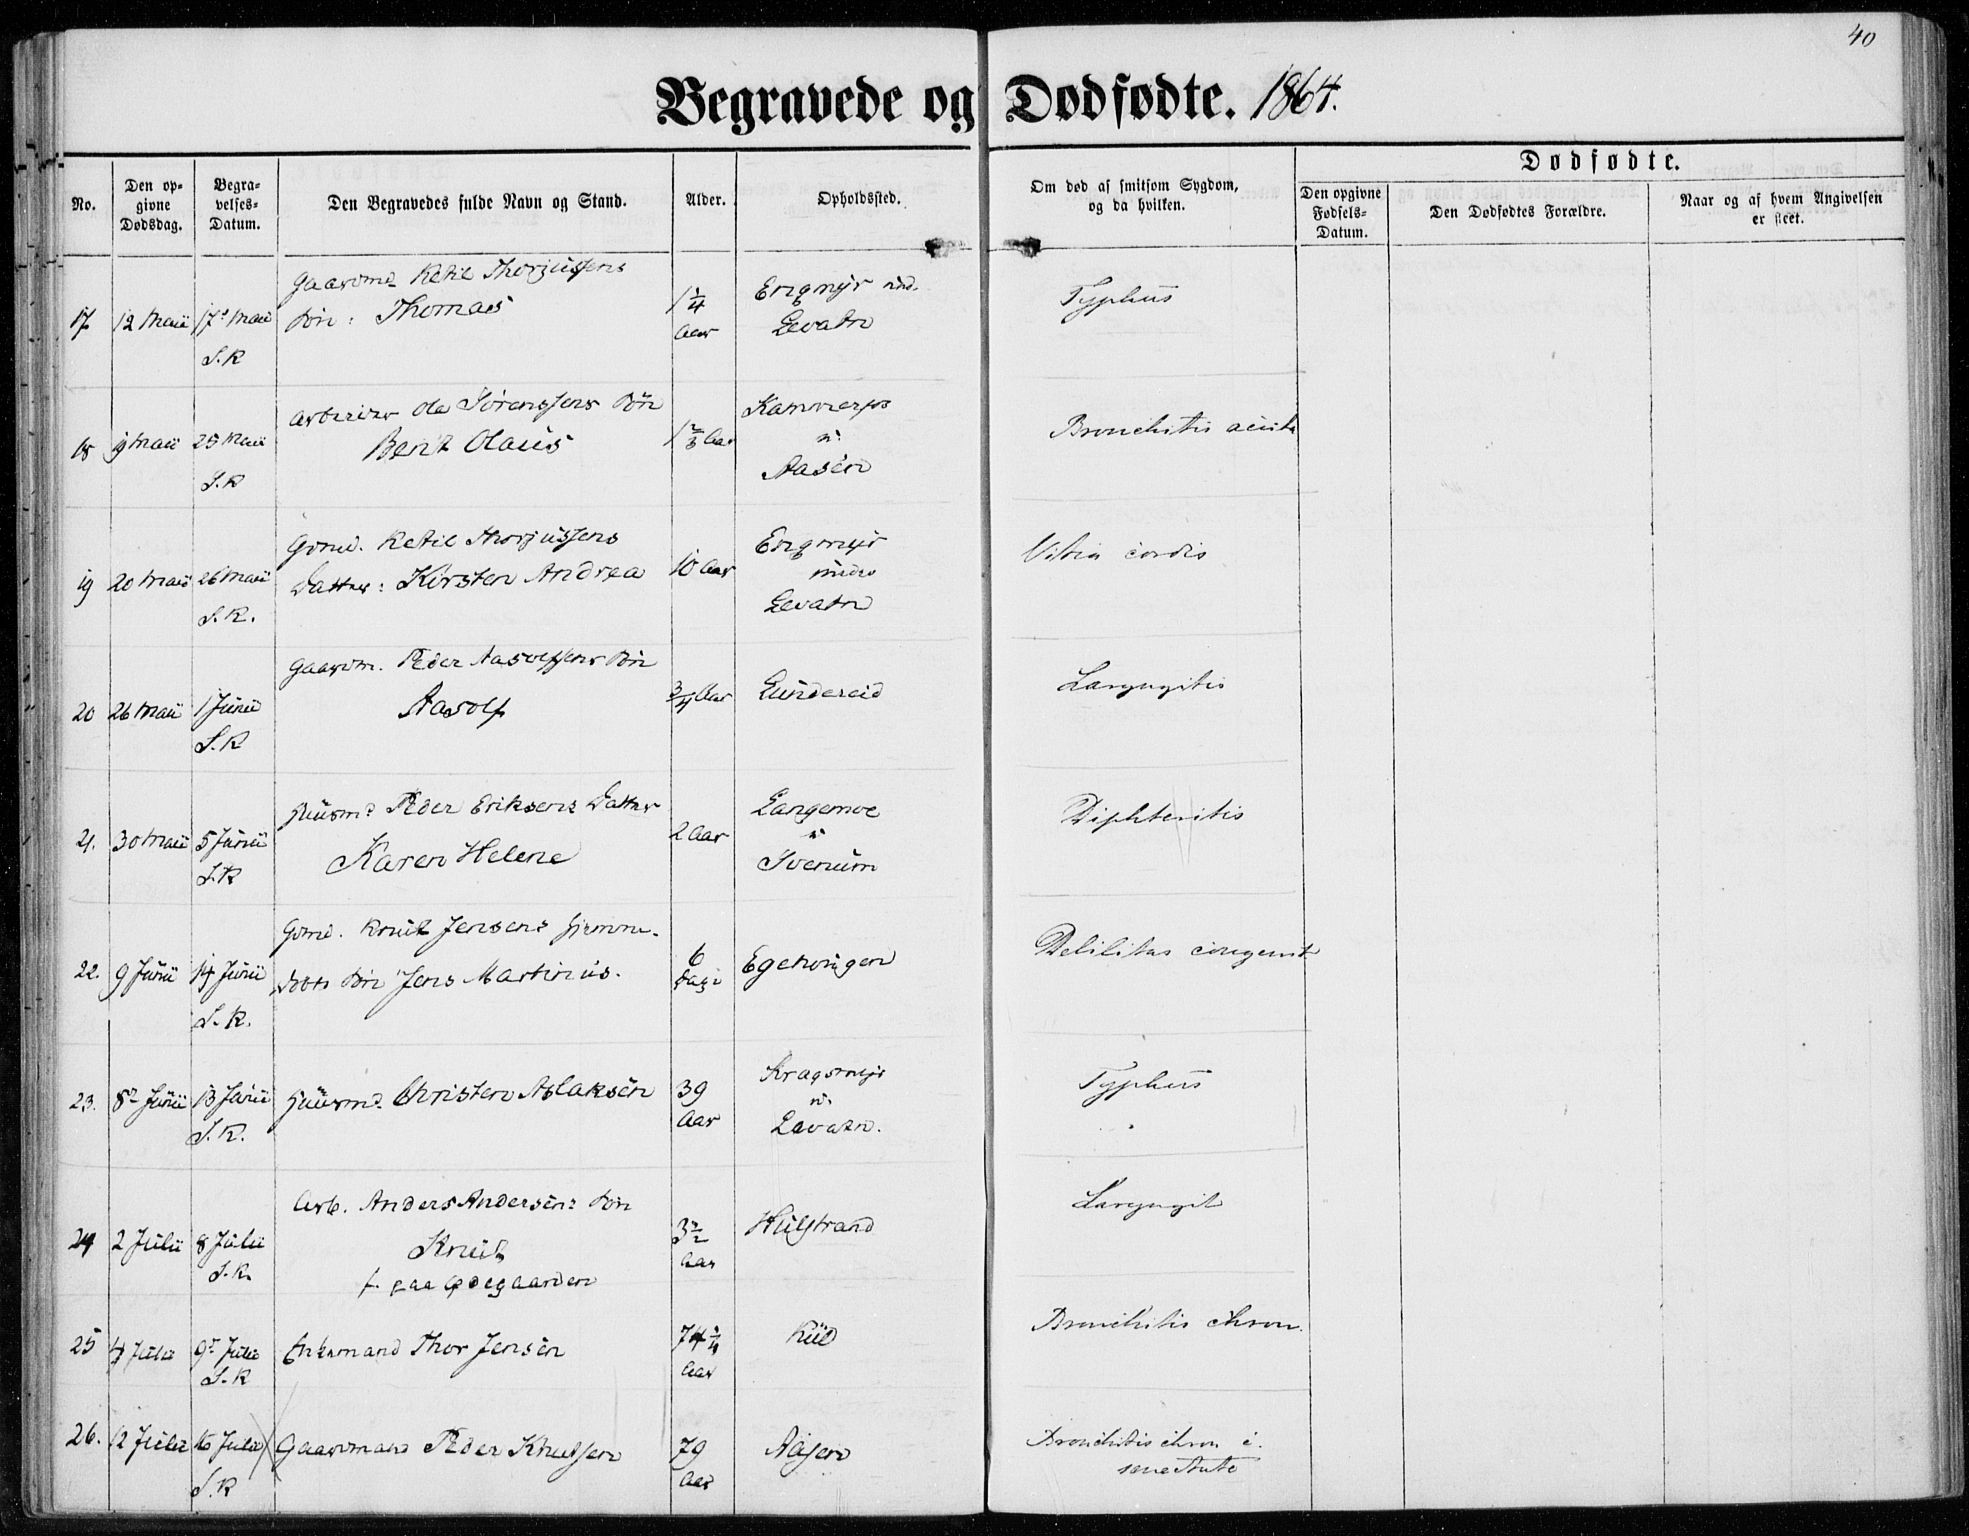 40
Begravede og Dødfødte. 1864.
No.
Den op-
givne
Dødsdag.
Begra-
velses-
Datum.
Den Begravedes fulde Navn og Stand.
Alder.
Opholdssted.
Om død af smitsom Sygdom,
og da hvilken.
Dødfødte.
Den opgivne
Fødsels-
Datum.
Den Dødfødtes Forældre.
Naar og af hvem Angivelsen
er skeet.
Gaardmd Ketil Thorjussens
17 12 Maii 17de Maii Søn: Thomas
S.K
1 1/4
Aar
Engmyr und.
Levatn
Typhus
Arbeider Ole Sörenssens Sön
18 9 Maii 25 Maii Bent Olaus
S.K
1 2/3 Aar
n:
Aasen
Bronchitis acuta
Grmd. Ketil Thorjussens
19 20 Maii 26 Maii Datter: Kirsten Andrea
S.K.
10 Aar
Engmyr
under
Levatn
Vitia cordis
Gaardm. Peder Aasolfsens Sön
20 26 Maii 1 Junii Aasolf
S.K
3/4 Aar
Lundereid
Laryngitis
Huusmd Peder Eriksens Datter
21. 30 Maii 5 Junii Karen Helene
S.K
2 Aar
Langemoe
n
Svenum
Diphteritis
Grmd. Knut Jensens hjemme-
22. 9 Junii 14 Junii döbte Sön Jens Martinius.
S.K.
6
Dage
Debilitas congenit
23. 8de Junii 13 Junii Huusmd Christen Aslaksen
S.K.
39
Aar
Kragsmyr
n.
Levatn.
Typhus
Arb. Anders Andersens Sön
24 2 Julii 8 Julii Knut
S.K.
f. paa Ødegaarden
3 1/2
Aar
Hulstrand
Laryngit
25 4 Julii 9de Julii Enkemand Thor Jensen
S.K
74 1/4
Aar
Kiil
Bronchitis chron.
26. 12 Julii 16 Julii Gaardmand Peder Knutsen
S.K
79
Aar
Aasen
Bronchitis chron i.
senectute